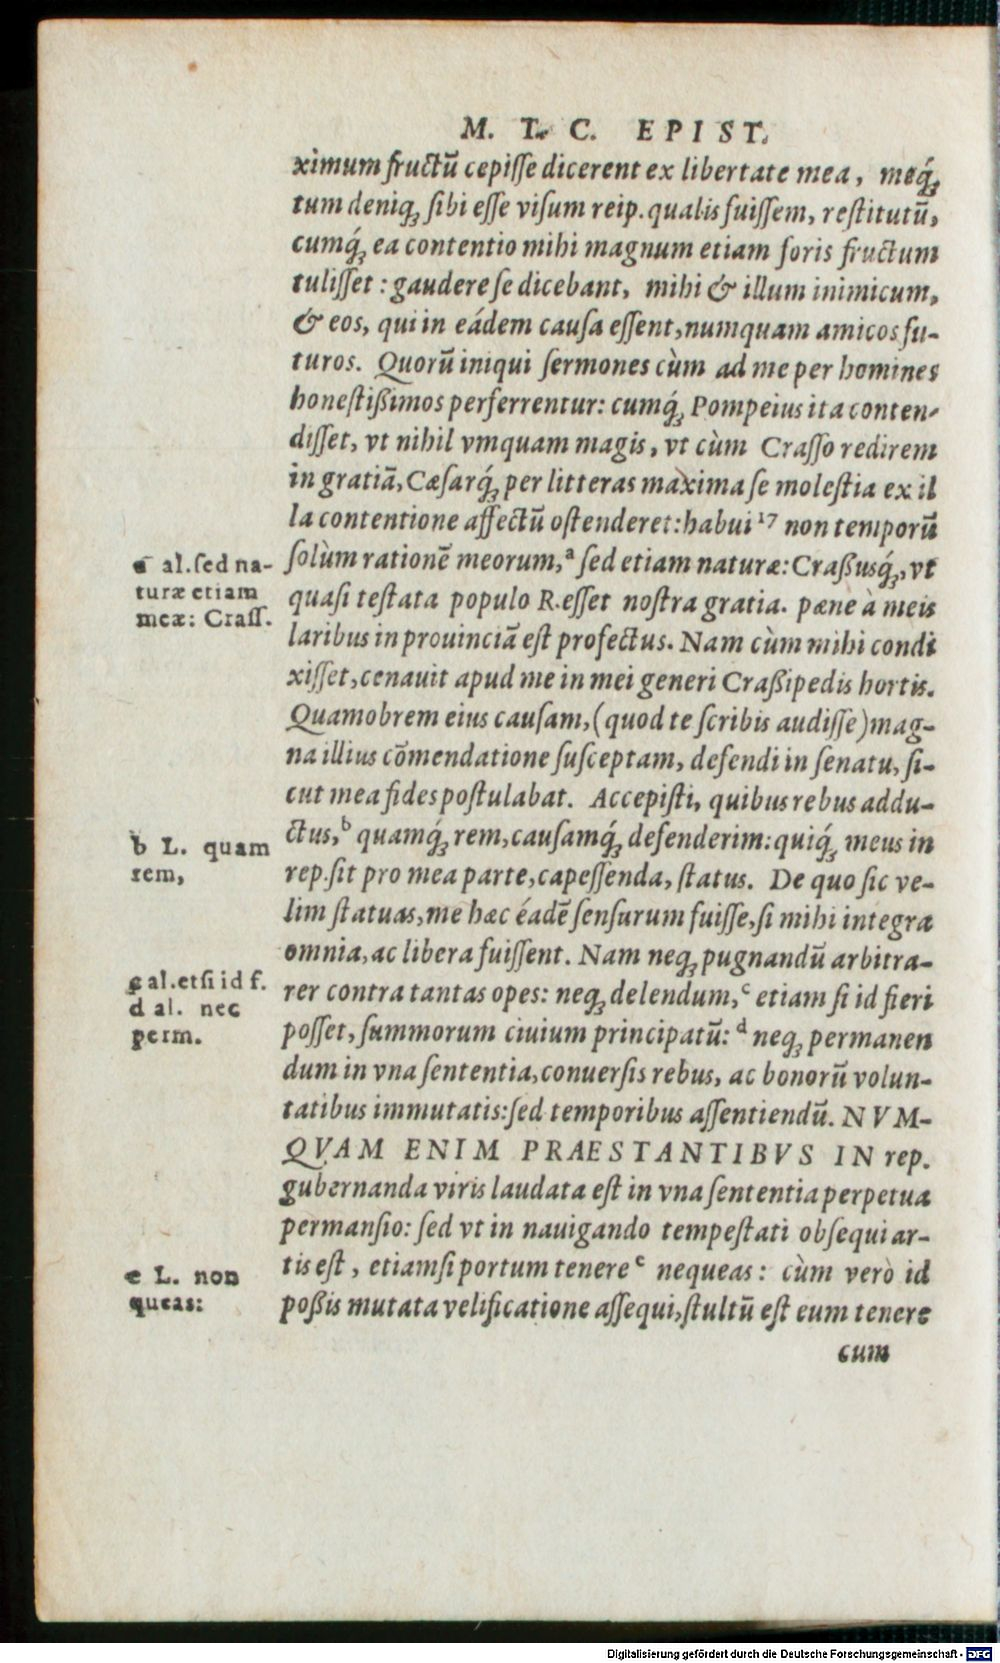 M. T. C. EPIST.
ximum fructū cepiſſe dicerent ex libertate mea, meq́ꝫ
tum deniqꝫ ſibi eſſe viſum reip. qualis fuiſſem, reſtitutū,
cumq́ꝫ ea contentio mihi magnum etiam foris fructum
tuliſſet: gaudere ſe dicebant, mihi & illum inimicum,
& eos, qui in eádem cauſa eſſent, numquam amicos fu-
turos. Quorū iniqui ſermones cùm ad me per homines
honeſtißimos perferrentur: cumq́ꝫ Pompeius ita conten-
diſſet, vt nihil vmquam magis, vt cùm Craſſo redirem
in gratiā, Cæſarq́ꝫ per litteras maxima ſe moleſtia ex il
la contentione affectū oſtenderet: habui ¹⁷ non temporū
ſolùm rationē meorum, ᵃ ſed etiam naturæ: Craßusq́ꝫ, vt
quaſi teſtata populo R. eſſet noſtra gratia. pæne à meis
laribus in prouinciā eſt profectus. Nam cùm mihi condi
xiſſet, cenauit apud me in mei generi Craßipedis hortis.
Quamobrem eius cauſam, (quod te ſcribis audiſſe) mag-
na illius cōmendatione ſuſceptam, defendi in ſenatu, ſi-
cut mea fides poſtulabat. Accepiſti, quibus rebus addu-
ctus, ᵇ quamq́ꝫ rem, cauſamq́ꝫ defenderim: quiq́ꝫ meus in
rep. ſit pro mea parte, capeſſenda, ſtatus. De quo ſic ve-
lim ſtatuas, me hæc éadē ſenſurum fuiſſe, ſi mihi integra
omnia, ac libera fuiſſent. Nam neqꝫ pugnandū arbitra-
rer contra tantas opes: neqꝫ delendum, ᶜ etiam ſi id fieri
poſſet, ſummorum ciuium principatū: ᵈ neqꝫ permanen
dum in vna ſententia, conuerſis rebus, ac bonorū volun-
tatibus immutatis: ſed temporibus aſſentiendū. NVM-
QVAM ENIM PRAESTANTIBVS IN rep.
gubernanda viris laudata eſt in vna ſententia perpetua
permanſio: ſed vt in nauigando tempeſtati obſequi ar-
tis eſt, etiamſi portum tenere ᵉ nequeas: cùm verò id
poßis mutata velificatione aſſequi, ſtultū eſt eum tenere
cum
a al. ſed na-
turæ etiam
meæ: Craſſ.
b L. quam
rem,
c al. etſi id f.
d al. nec
perm.
e L. non
queas:
Digitalisierung gefördert durch die Deutsche Forschungsgemeinschaft - DFG